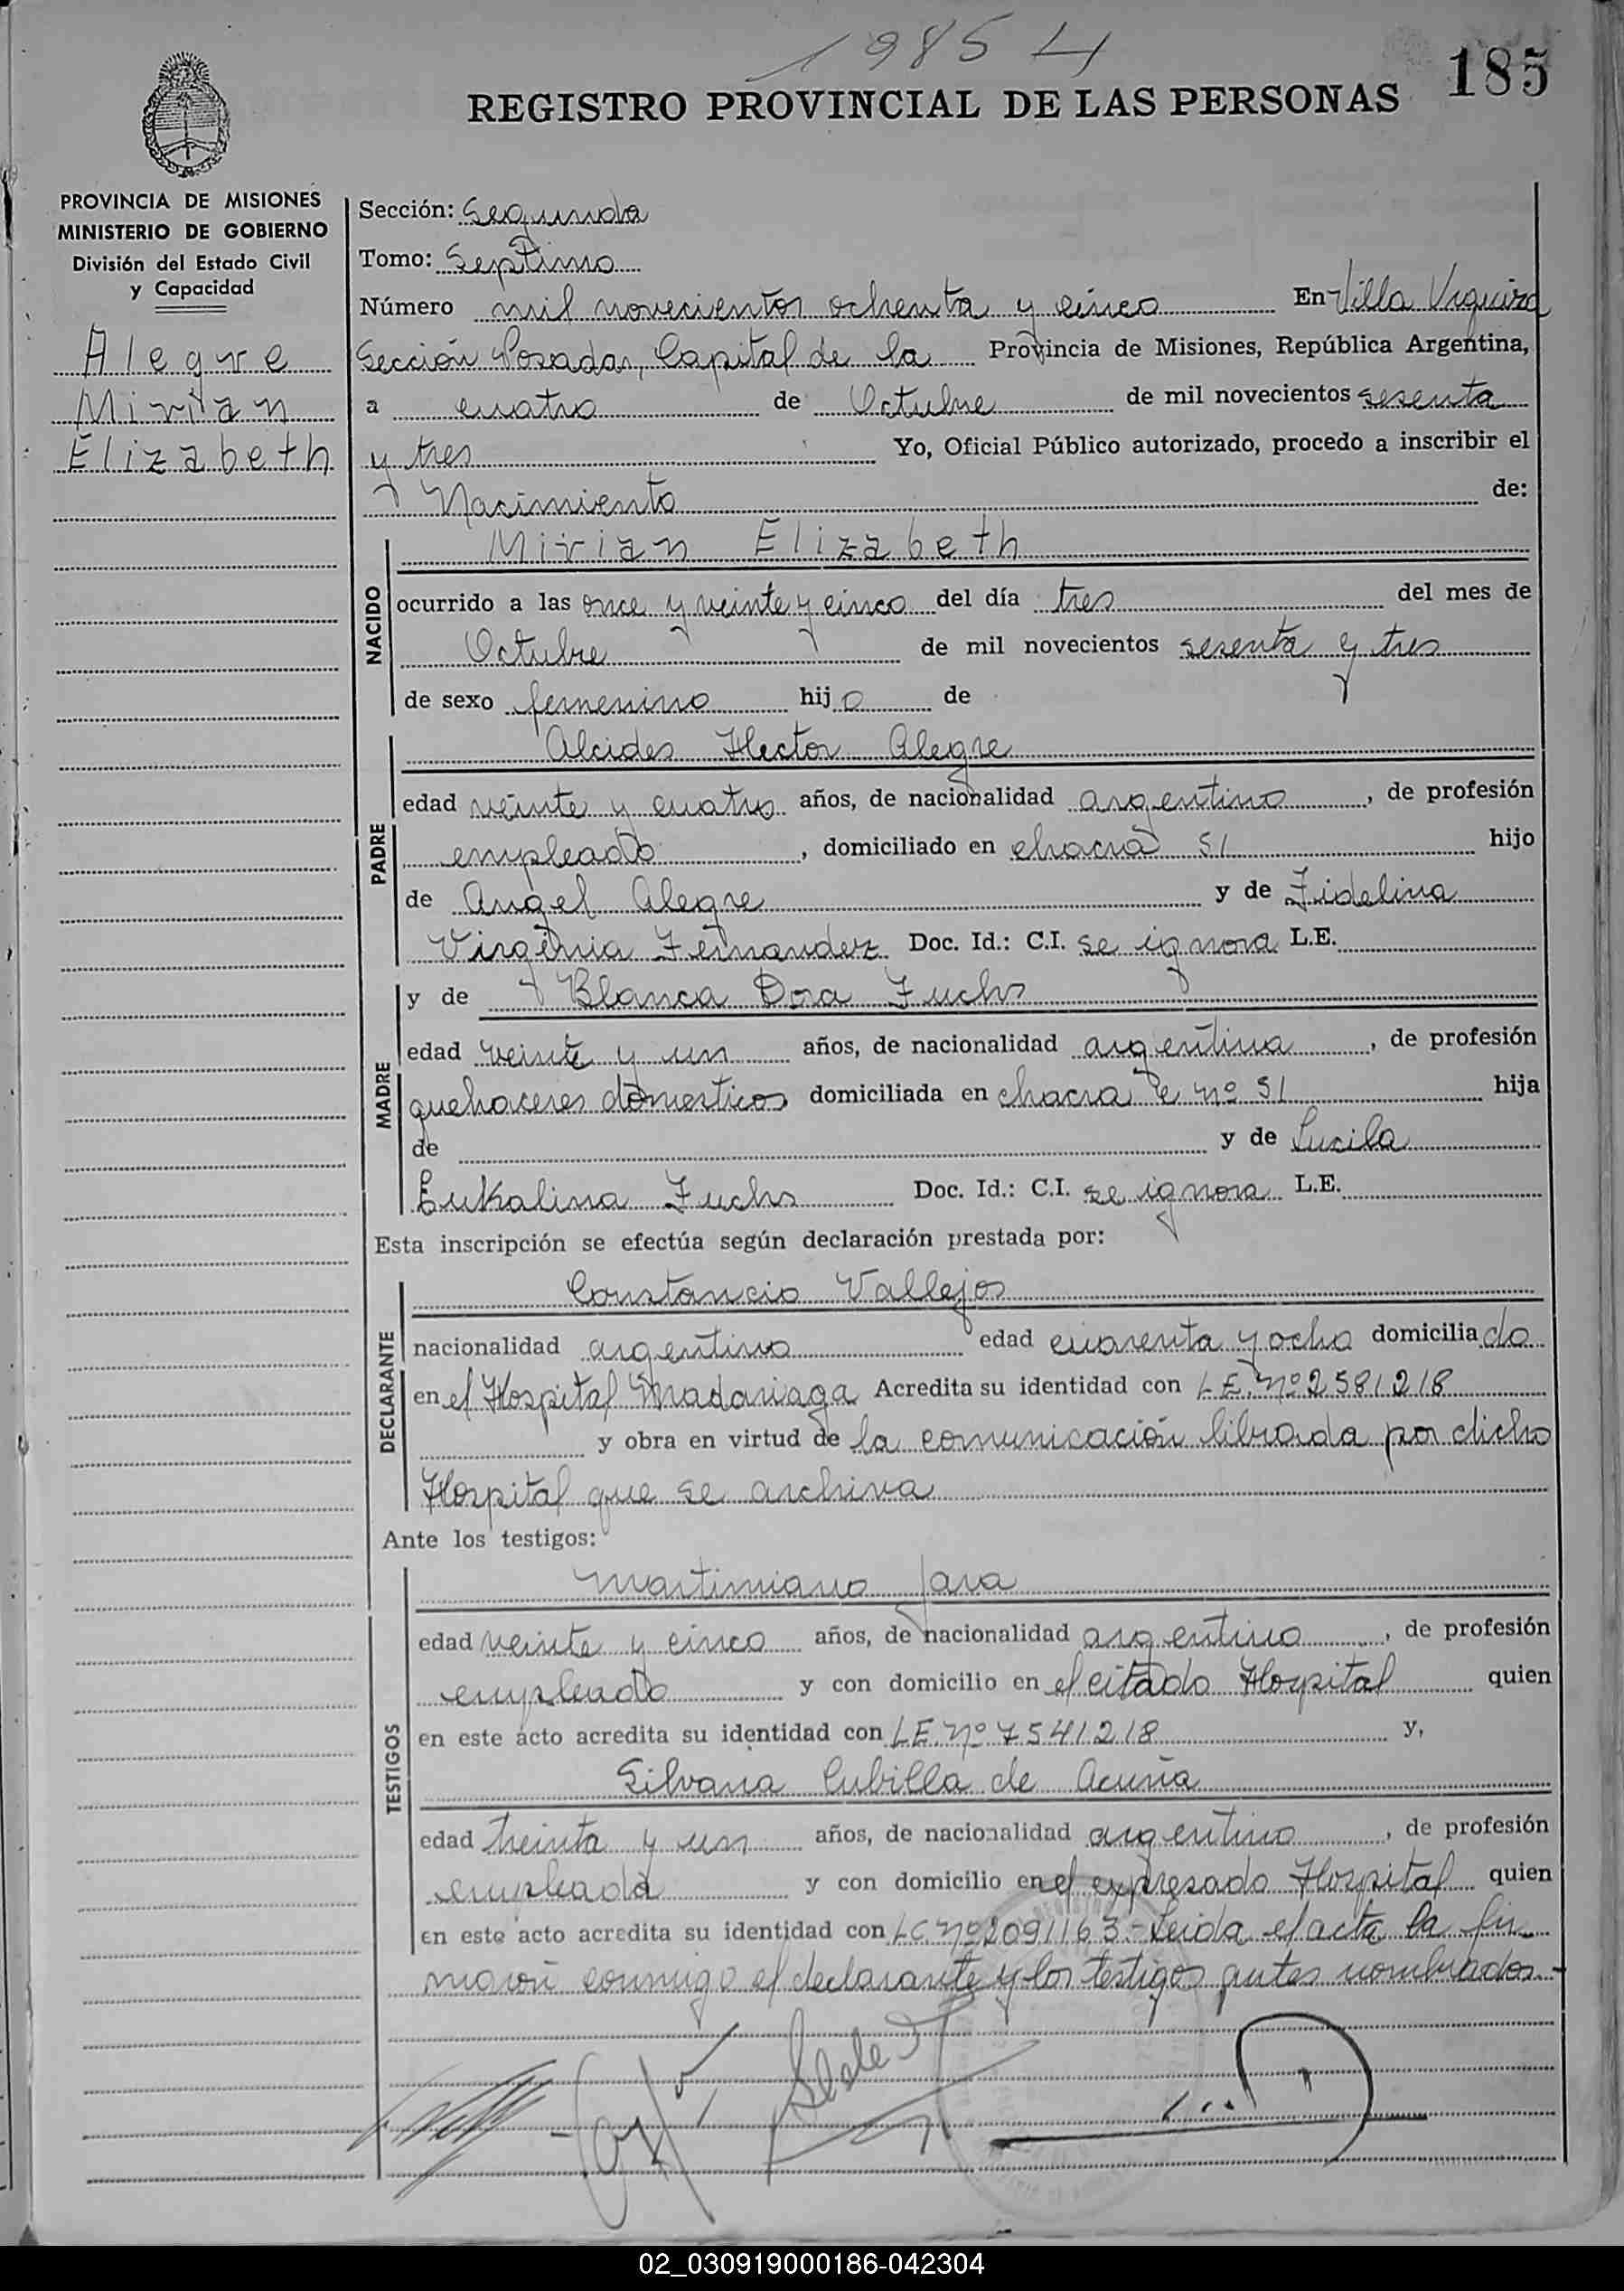 1985 4
185
REGISTRO PROVINCIAL DE LAS PERSONAS
PROVINCIA DE MISIONES
MINISTERIO DE GOBIERNO
División del Estado Civil
y Capacidad
Alegre
Mirian
Elizabeth
Sección: Segunda
Tomo: Septimo
Número mil novecientos ochenta y cinco En Villa Urquiza
Sección Posadas, Capital de la Provincia de Misiones, República Argentina,
a cuatro de Octubre de mil novecientos sesenta
y tres Yo, Oficial Público autorizado, procedo a inscribir el
Nacimiento de:
Mirian Elizabeth
NACIDO
ocurrido a las once y veinte y cinco del día tres del mes de
Octubre de mil novecientos sesenta y tres
de sexo femenino hijo de
PADRE
Alcides Hector Alegre
edad veinte y cuatro años, de nacionalidad argentino, de profesión
empleado, domiciliado en chacra 51 hijo
de Angel Alegre y de Fidelina
Virginia Fernandez Doc. Id.: C.I. se ignora L.E.
MADRE
y de Blanca Dora Fuchs
edad veinte y un años, de nacionalidad argentina, de profesión
quehaceres domesticos domiciliada en chacra nº 51 hija
de y de Lucila
Eukalina Fuchs Doc. Id.: C.I. se ignora L.E.
Esta inscripción se efectúa según declaración prestada por:
DECLARANTE
Constancio Vallejos
nacionalidad argentino edad cuarenta y ocho domiciliado
en el Hospital Madariaga Acredita su identidad con L.E. nº 2581218
y obra en virtud de la comunicación librada por dicho
Hospital que se archiva
Ante los testigos:
TESTIGOS
Martimiano Jara
edad veinte y cinco años, de nacionalidad argentino, de profesión
empleado y con domicilio en el citado Hospital quien
en este acto acredita su identidad con L.E. nº 7541218 y,
Silvana Cubilla de Acuña
edad treinta y un años, de nacionalidad argentino, de profesión
empleada y con domicilio en el expresado Hospital quien
en este acto acredita su identidad con LC nº 2091163.- Leida el acta la fir-
man conmigo el declarante y los testigos antes nombrados.-
02_030919000186-042304